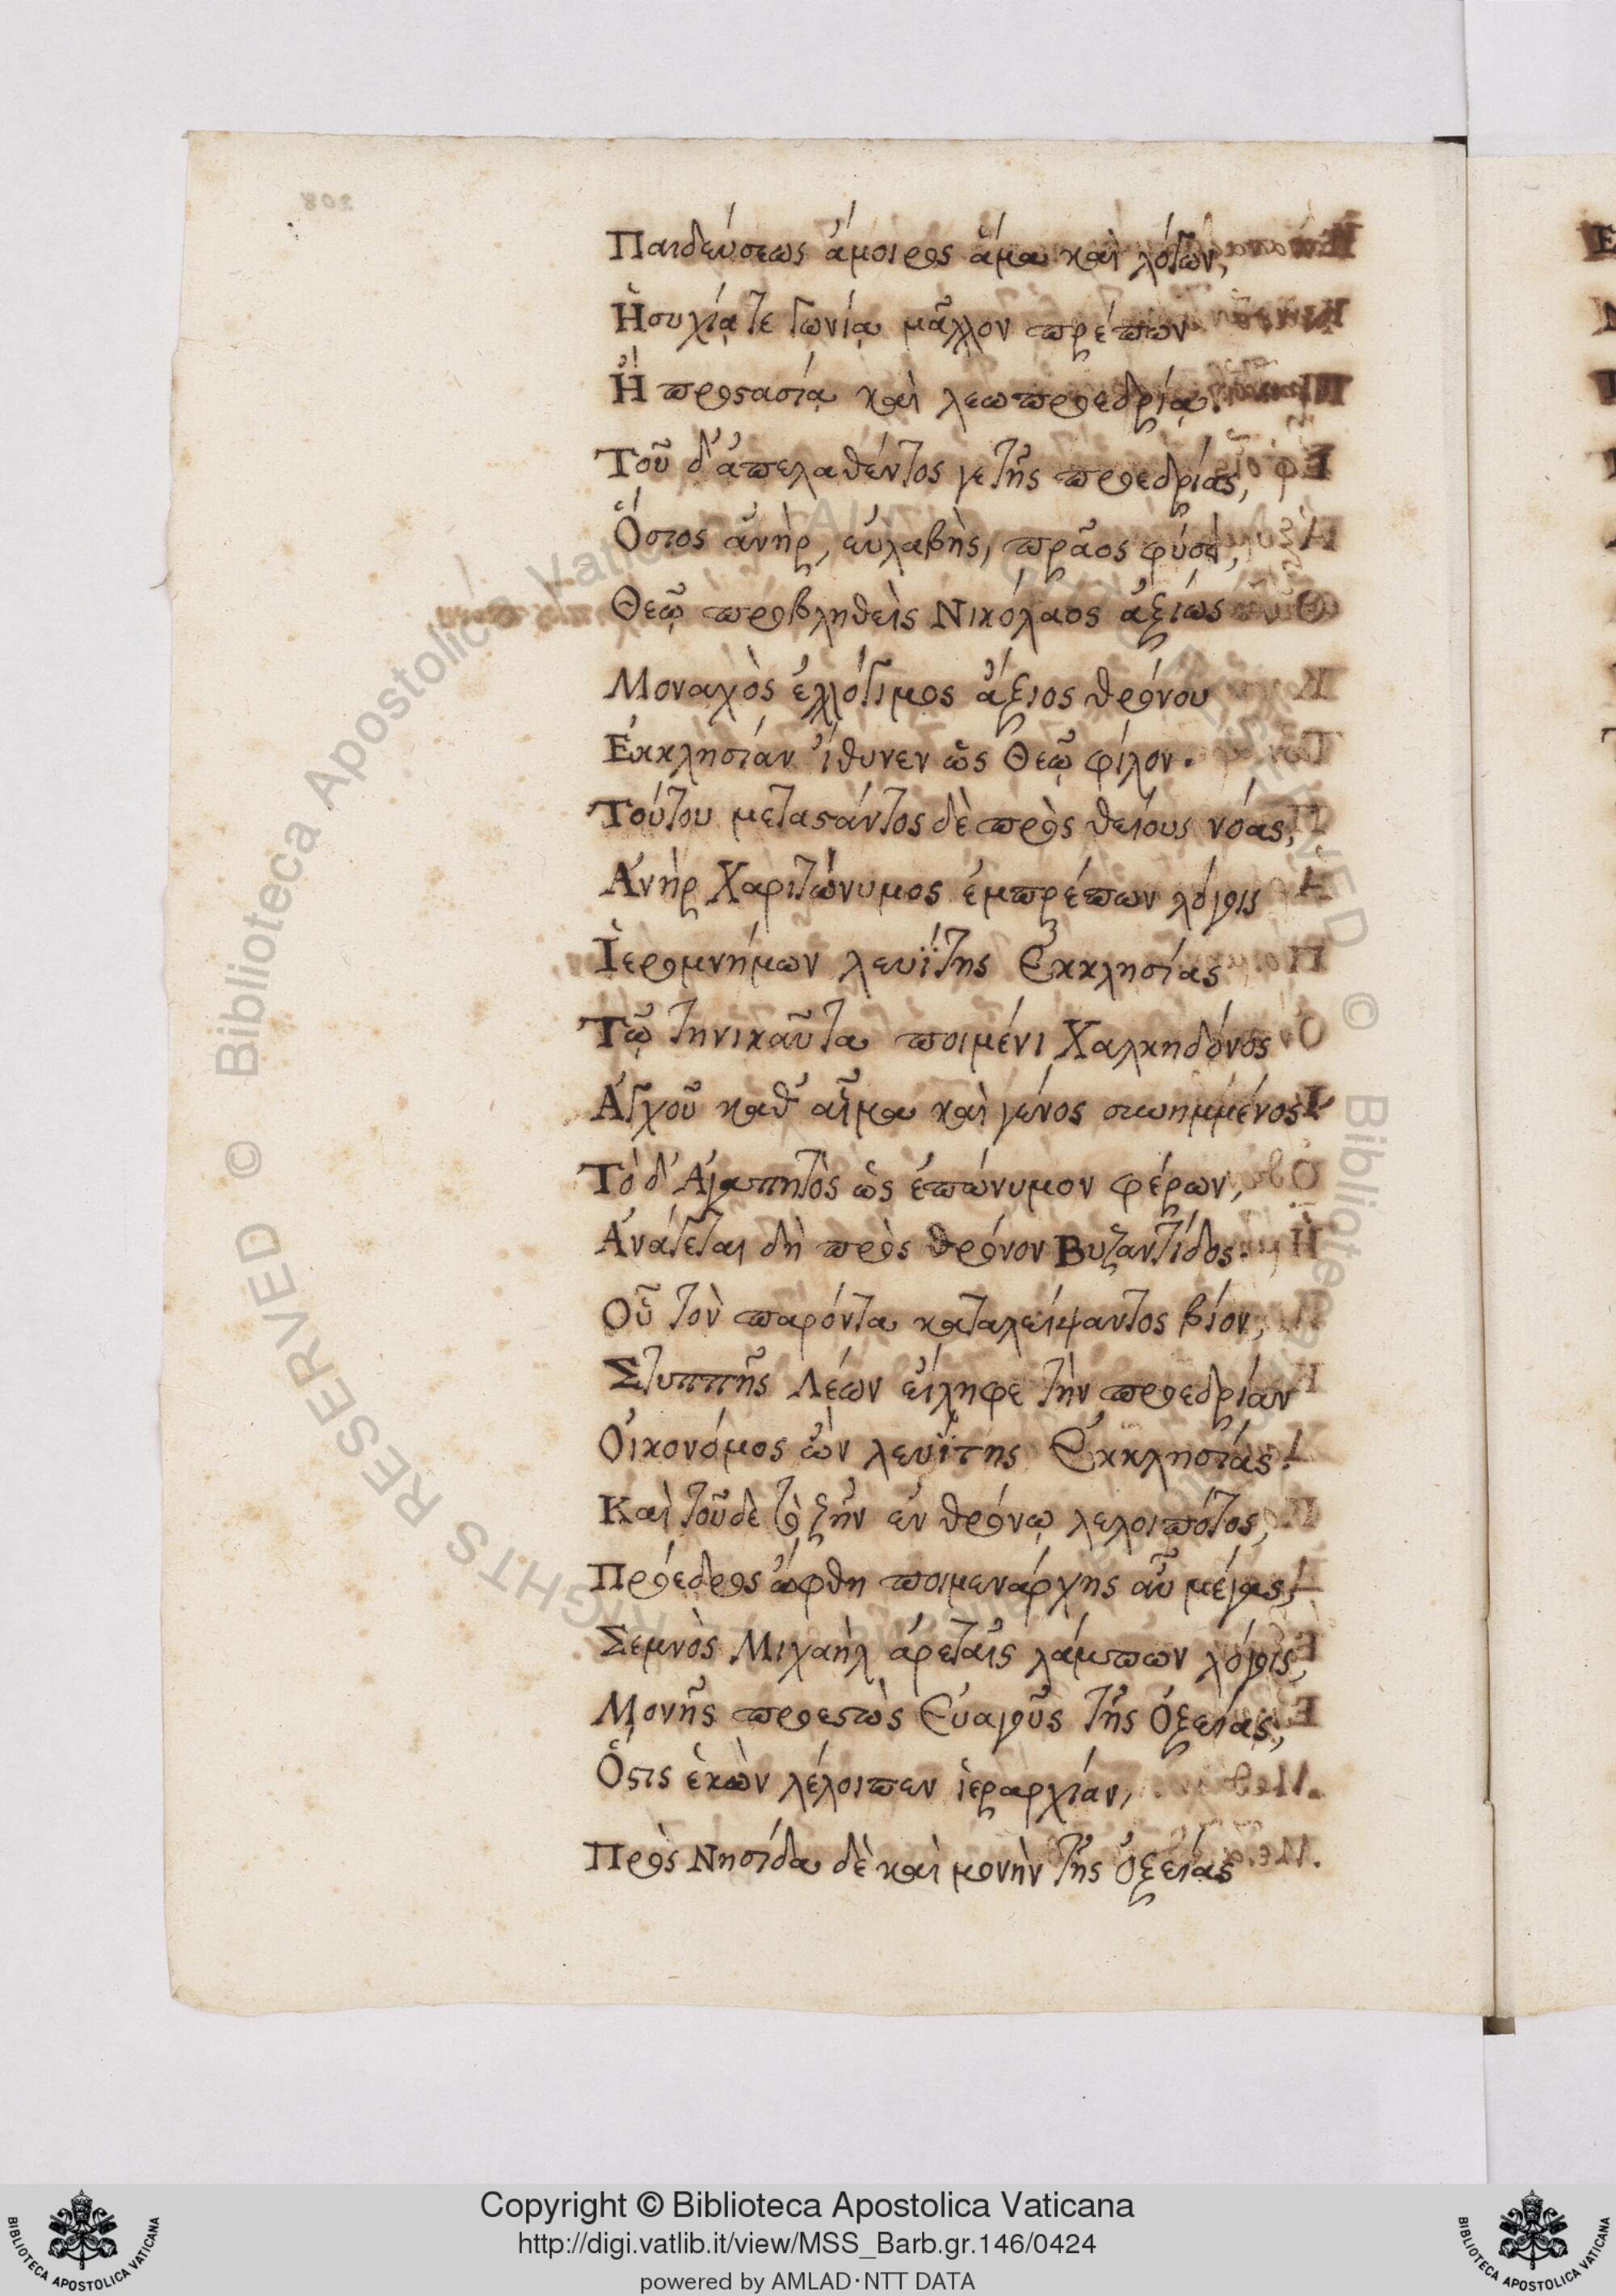 Παιδεύσεως ἄμοιρος ἅμα καὶ λόγων,
Ἡσυχίᾳ τε γωνίᾳ μᾶλλον πρέπων
Ἢ προστασίᾳ καὶ λεωπροεδρίᾳ.
Τοῦ δ' ἀπελαθέντος γε τῆς προεδρίας,
Ὅσιος ἀνὴρ, εὐλαβὴς, πρᾶος φύσει,
Θεῷ προβληθεὶς Νικόλαος ἀξίως
Μοναχὸς ἐλλόγιμος ἄξιος θρόνου
Ἐκκλησίαν ἴθυνεν ὡς Θεῷ φίλον.
Τούτου μεταστάντος δὲ πρὸς θείους νόας,
Ἀνὴρ Χαριτώνυμος ἐμπρέπων λόγοις
Ἱερομνήμων λευΐτης Ἐκκλησίας
Τῷ τηνικαῦτα ποιμένι Χαλκηδόνος
Ἀγχοῦ καθ' αἷμα καὶ γένος συνημμένος
Τὸ δ' Ἀγαπητὸς ὡς ἐπώνυμον φέρων,
Ἀνάγεται δὴ πρὸς θρόνον Βυζαντίδος.
Οὗ τὸν παρόντα καταλείψαντος βίον,
Στυππῆς Λέων εἴληφε τὴν προεδρίαν
Οἰκονόμος ὢν λευΐτης Ἐκκλησίας.
Καὶ τοῦδε τὸ ζῆν ἐν θρόνῳ λελοιπότος,
Πρόεδρος ὤφθη ποιμενάρχης αὖ μέγας,
Σεμνὸς Μιχαὴλ ἀρεταῖς λάμπων λόγοις,
Μονῆς προεστὼς Εὐαγοῦς τῆς Ὀξείας,
Ὅστις ἑκὼν λέλοιπεν ἱεραρχίαν,
Πρὸς Νησίδα δὲ καὶ μονὴν τῆς Ὀξείας
Copyright © Biblioteca Apostolica Vaticana
http://digi.vatlib.it/view/MSS_Barb.gr.146/0424
powered by AMLAD·NTT DATA